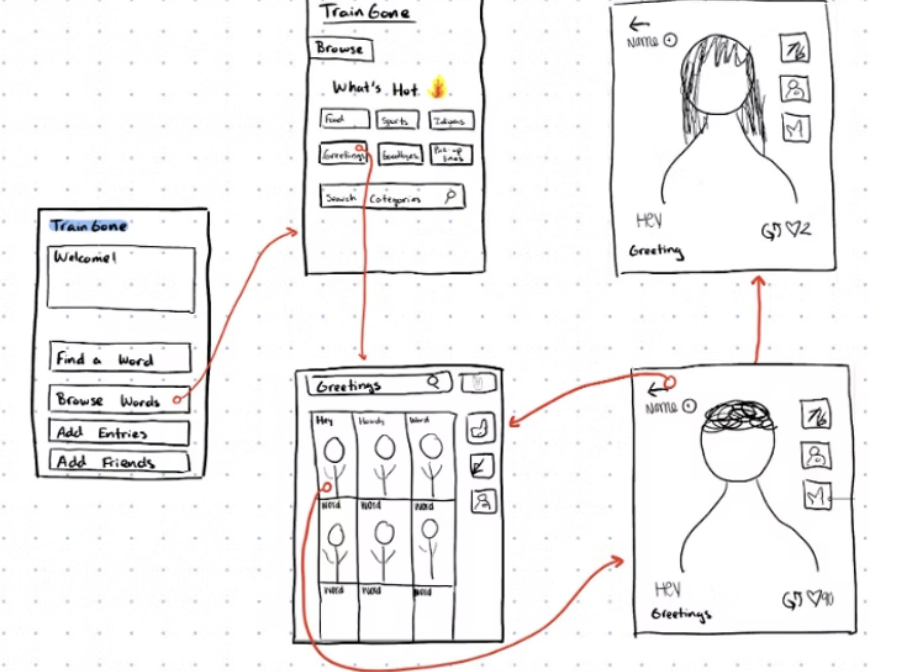 Train Gone
Welcome!
Find a Word
Browse Words
Add Entries
Add Friends
Train Gone
Browse
What's Hot
Food Sports Idioms
Greetings Goodbyes Pick-up lines
Search Categories
Greetings
Hey Howdy Word
Word Word Word
Word Word Word
Name
Hey
2
Greeting
Name
Hey
90
Greetings